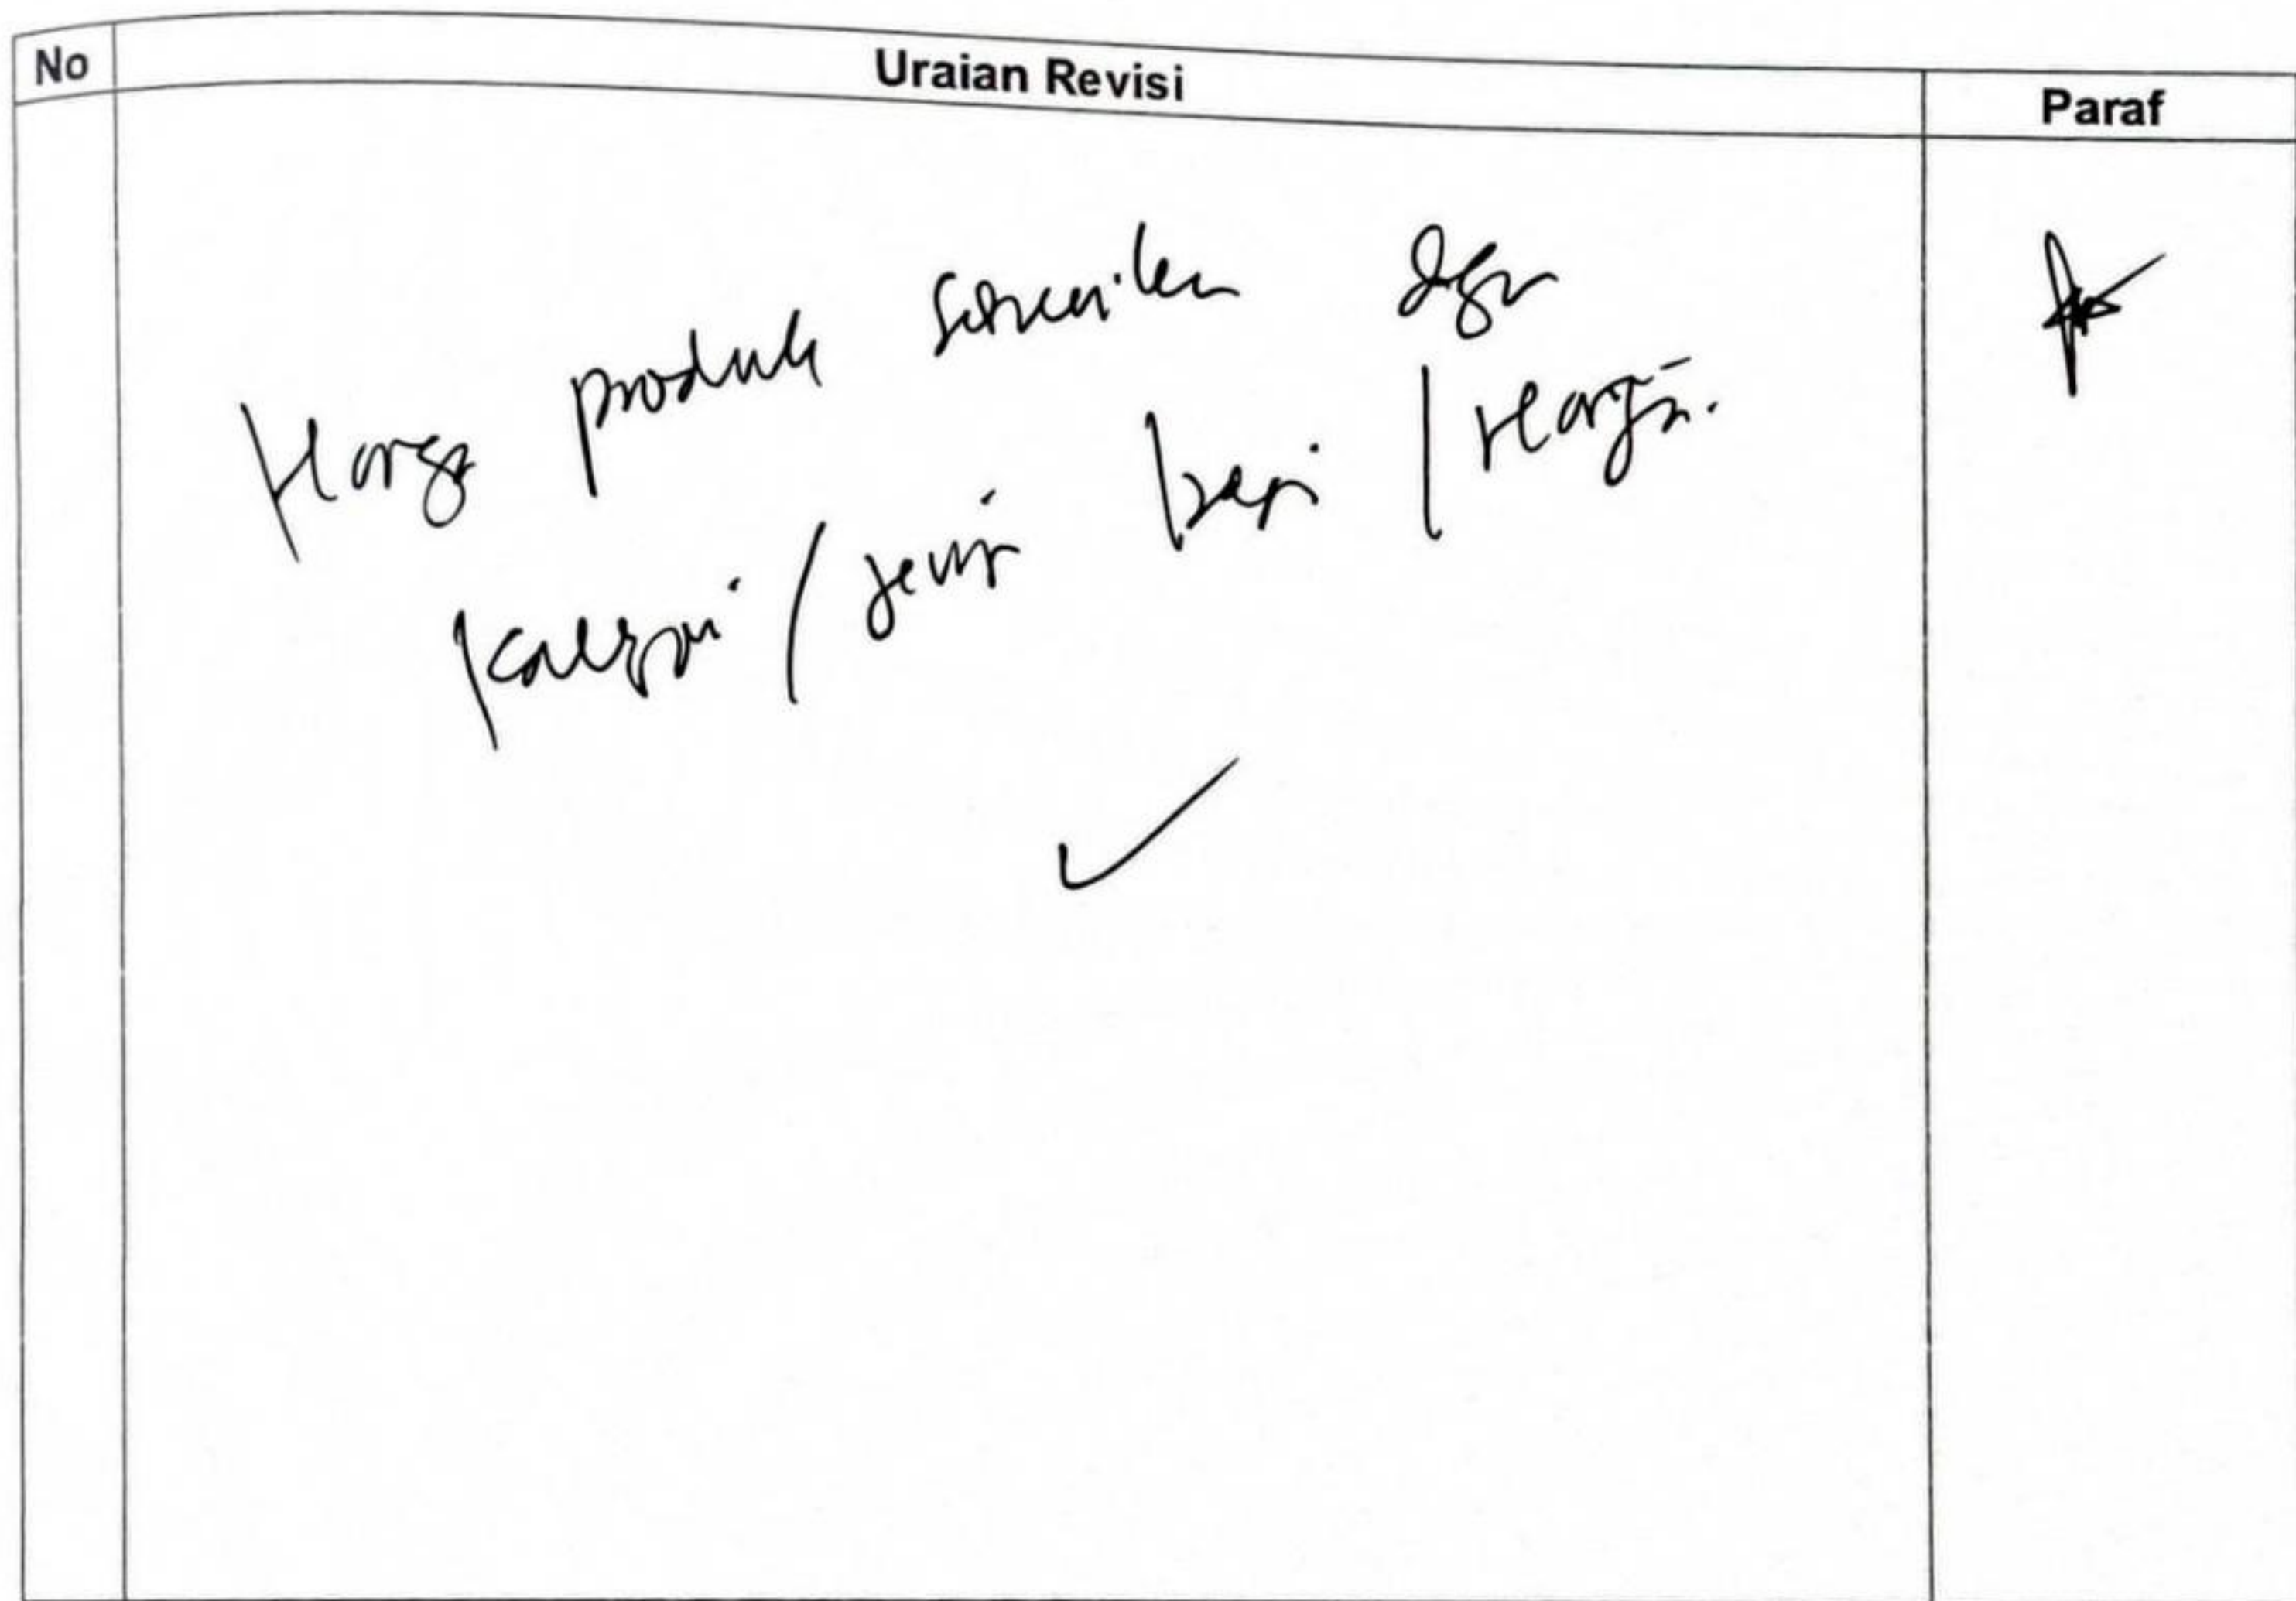 No Uraian Revisi Paraf
Harga produk sesuaikan dgn
/ jenis kopi / Harga.